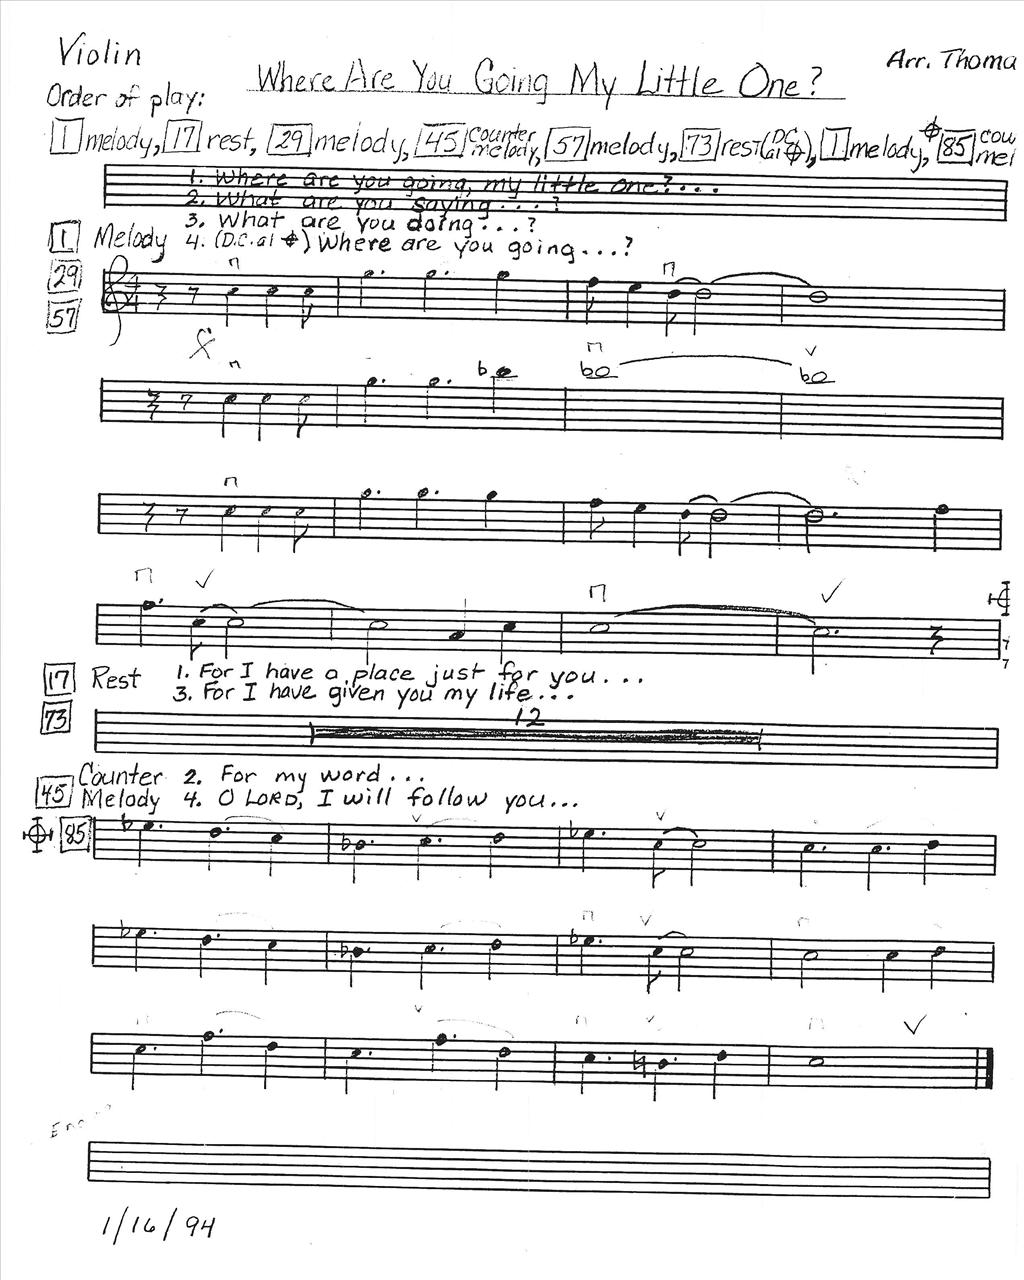 Violin
Where Are You Going My Little One?
Arr. Thoma
Order of play:
1 melody, 17 rest, 29 melody, 45 counter melody, 57 melody, 73 rest (D.C. al 𝄌), 1 melody, 𝄌 85 cou mel
1. Where are you going, my little one?...
2. What are you saying...?
3. What are you doing...?
1 Melody 4. (D.C. al 𝄌) Where are you going...?
29
57
4/4
17 Rest 1. For I have a place just for you...
3. For I have given you my life...
73
12
Counter 2. For my word...
45 Melody 4. O LORD, I will follow you...
𝄌 85
1/16/94